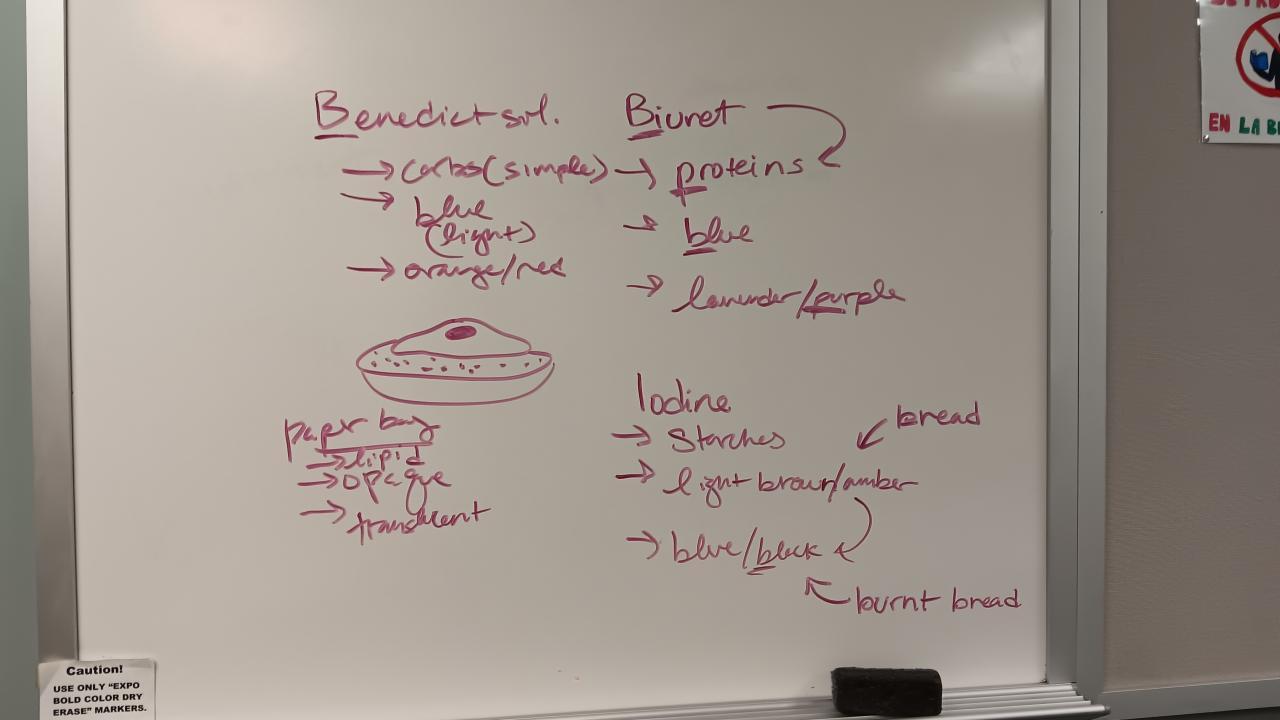 Benedict sol.
→ carbs (simple)
→ blue
(light)
→ orange/red
Biuret
→ proteins
→ blue
→ lavender/purple
paper bag
→ lipid
→ opaque
→ translucent
Iodine
→ Starches
→ light brown/amber
→ blue/black
bread
burnt bread
EN LA
Caution!
USE ONLY "EXPO
BOLD COLOR DRY
ERASE" MARKERS.